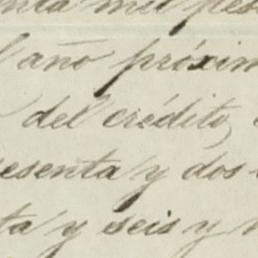 enta mil pes
l año próxim
del crédito,
esenta y dos
ta y seis y